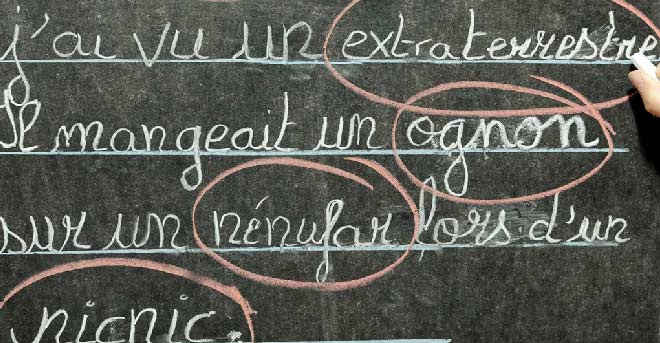 j'ai vu un extraterrestre
Il mangeait un ognon
sur un nénufar lors d'un
picnic.